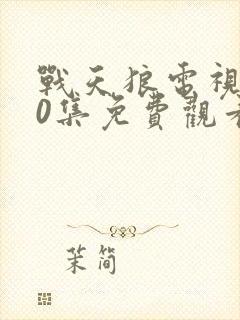 戰天狼電視
0集免費觀看
茉简